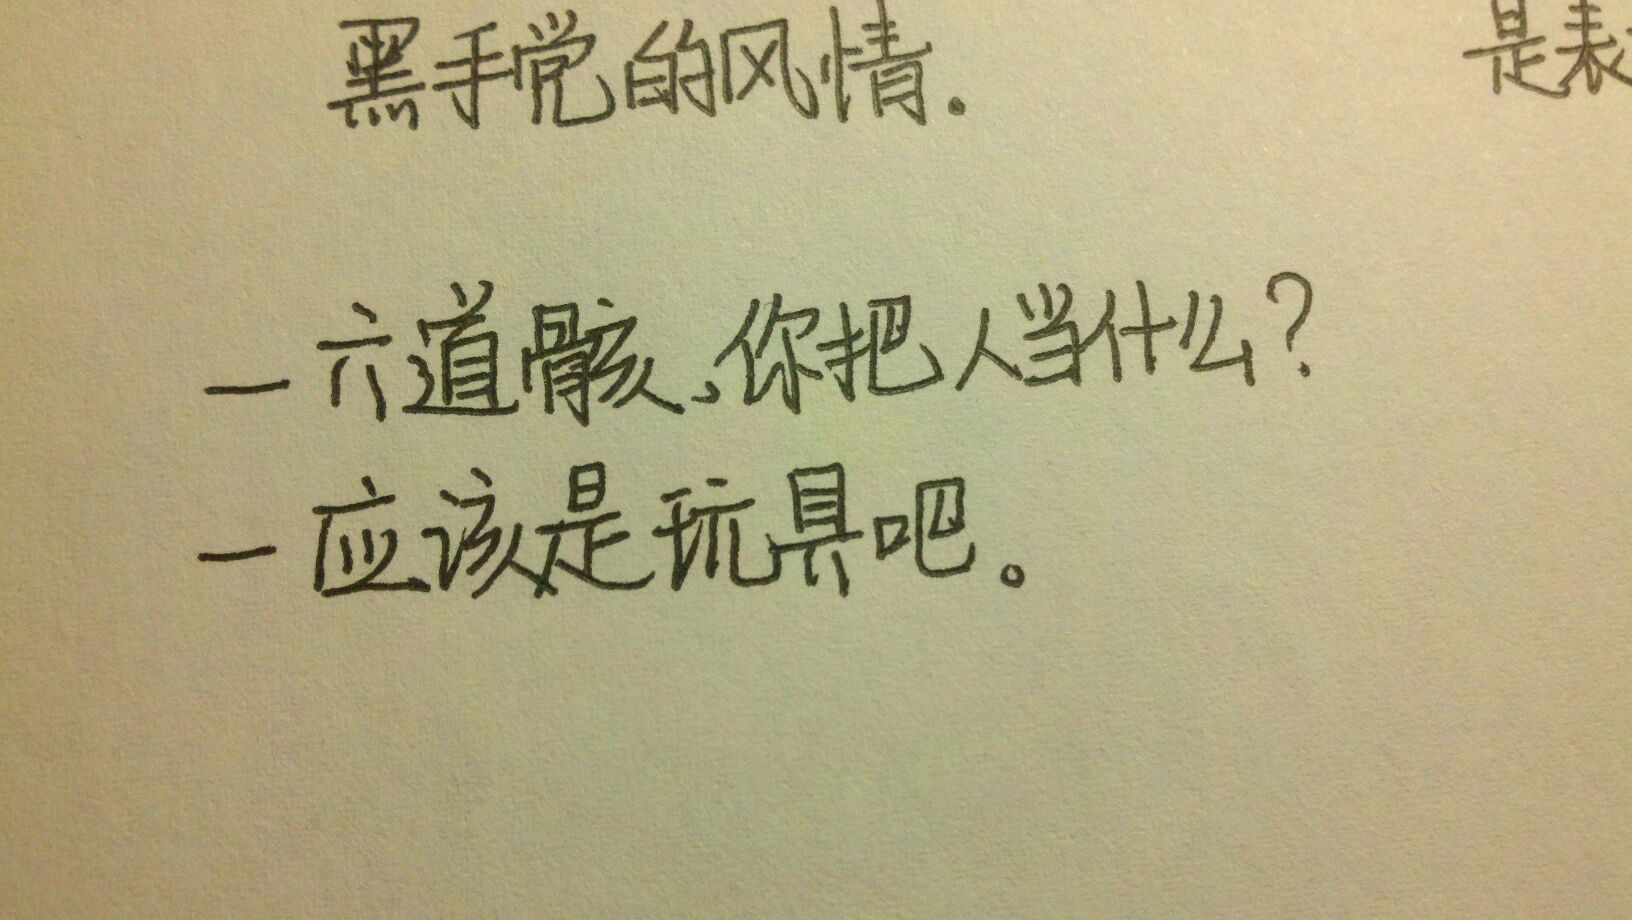 黑手党的风情.
是表
—六道骸、你把人当什么?
—应该是玩具吧。